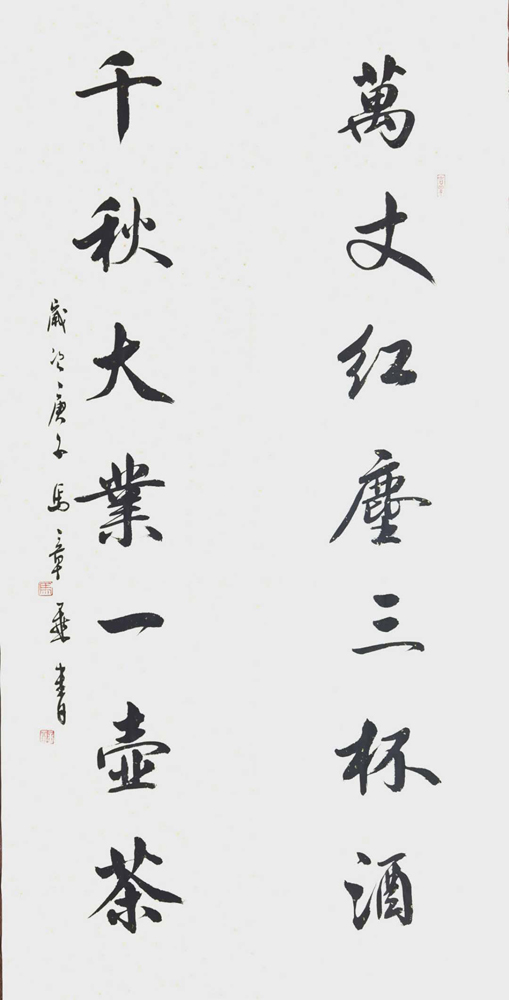 萬丈红塵三杯酒
千秋大業一壺茶
歲次庚子馬章乘書